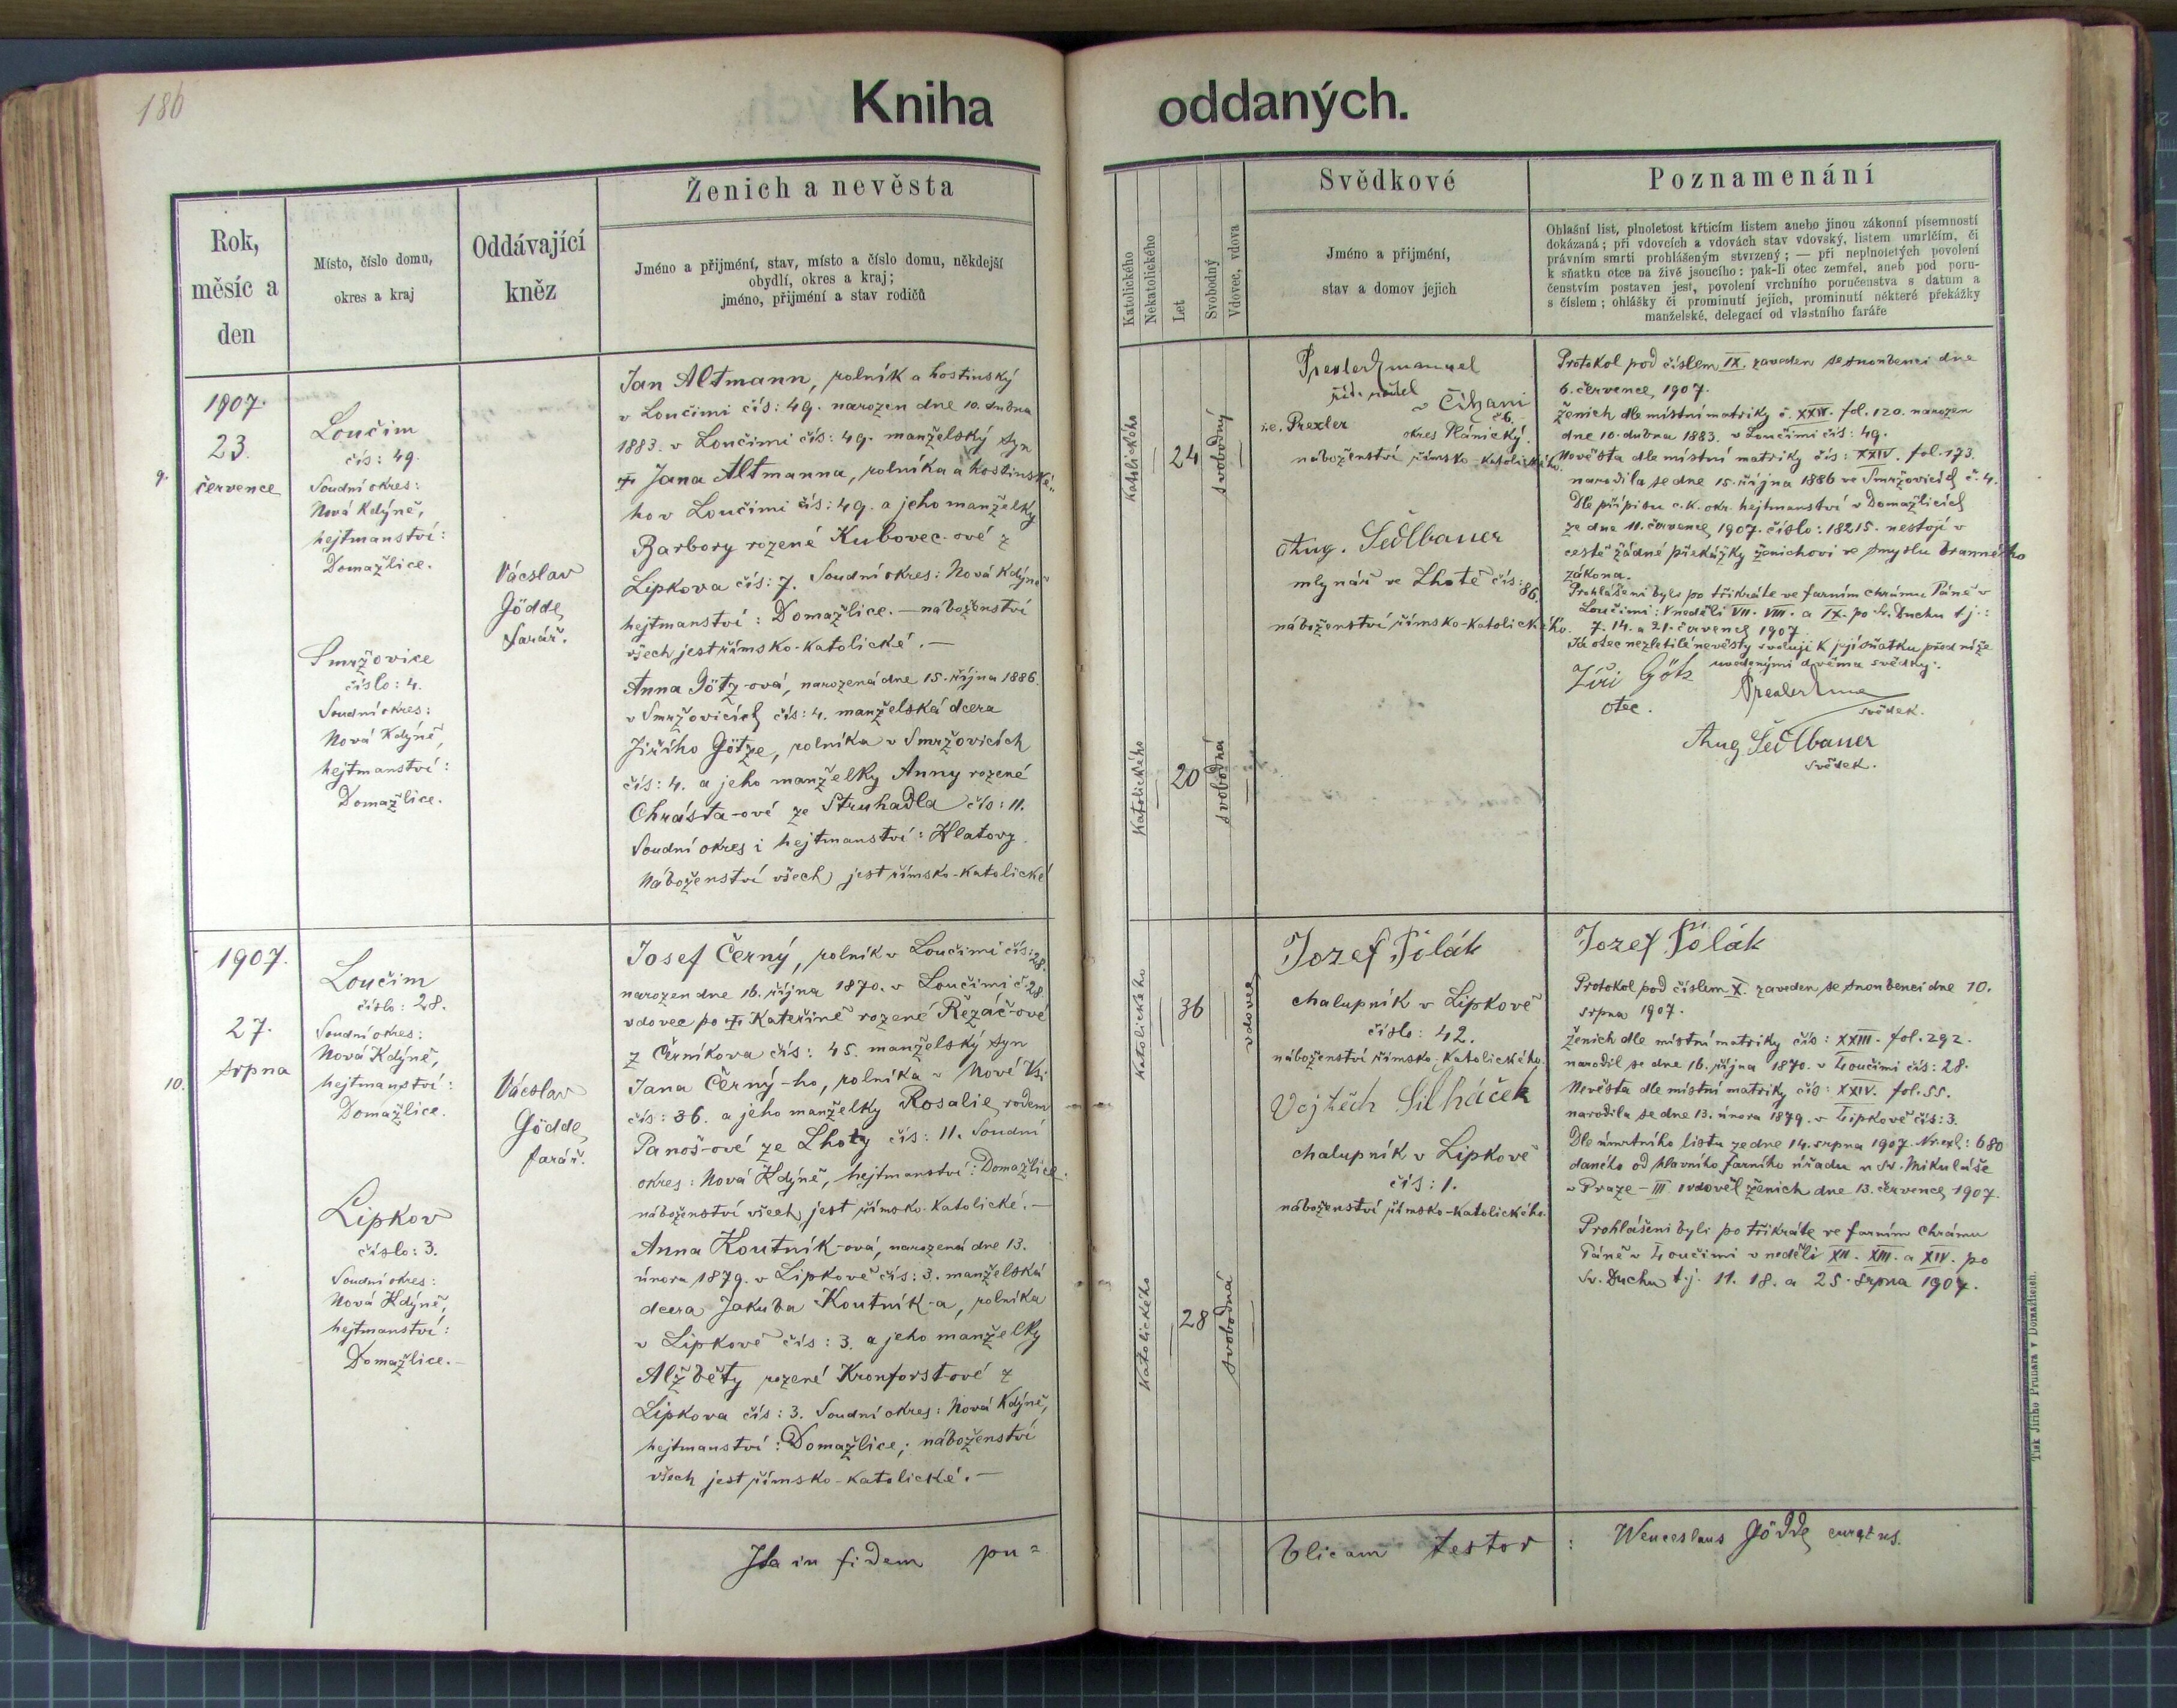 186
Kniha oddaných.
Rok,
měsíc a
den
Místo, číslo domu,
okres a kraj
Oddávající
kněz
Ženich a nevěsta
Jméno a přijméní, stav, místo a číslo domu, někdejší
obydlí, okres a kraj;
jméno, přijméní a stav rodičů
Katolického
Nekatolického
Let
Svobodný
Vdovec, vdova
Svědkové
Jméno a přijmení,
stav a domov jejich
Poznamenání
Ohlašní list, plnoletost křticím listem anebo jinou zákonní písemností
dokázaná; při vdovcích a vdovách stav vdovský, listem umrlčím, či
právním smrti prohlášeným stvrzený; — při neplnoletých povolení
k sňatku otce na živě jsoucího: pak-li otec zemřel, aneb pod poru-
čenstvím postaven jest, povolení vrchního poručenstva s datum a
s číslem; ohlášky či prominutí jejich, prominutí některé překážky
manželské, delegací od vlastního faráře
9.
1907.
23.
července
Loučim
čís: 49.
Soudní okres:
Nová Kdýně,
hejtmanství:
Domažlice.
Smržovice
číslo: 4.
Soudní okres:
Nová Kdýně,
hejtmanství:
Domažlice.
Václav
Gödde,
farář.
Jan Altmann, rolník a hostinský
v Loučimi čís: 49. narozen dne 10. dubna
1883. v Loučimi čís: 49. manželský syn
† Jana Altmanna, rolníka a hostinské„
ho v Loučimi čís: 49. a jeho manželky
Barbory rozené Kubovec-ové z
Lipkova čís: 7. Soudní okres: Nová Kdýně
hejtmanství: Domažlice. — náboženství
všech jest římsko-katolické. —
Anna Götz-ová, narozená dne 15. října 1886.
v Smržovicích čís: 4. manželská dcera
Jiřího Götze, rolníka v Smržovicích
čís: 4. a jeho manželky Anny rozené
Chrásta-ové ze Struhadla čís: 11.
Soudní okres i hejtmanství: Klatovy.
Náboženství všech jest římsko-katolické
Katolického
24
svobodný
Katolického
20
svobodná
Prexler Emanuel
říd. učitel
v Číhani
č 6.
i.e. Prexler okres Plánický.
náboženství římsko-katolického.
Aug. Sedlbauer
mlynář ve Lhotě čís: 86.
náboženství římsko-katolického.
Protokol pod číslem IX. zaveden se snoubenci dne
6. července, 1907.
Ženich dle místní matriky č. XXIV. fol. 120. narozen
dne 10. dubna 1883. v Loučimi čís: 49.
Nevěsta dle místní matriky čís: XXIV. fol. 173.
narodila se dne 15. října 1886 ve Smržovicích č. 4.
Dle přípisu c.k. okr. hejtmanství v Domažlicích
ze dne 11. července 1907. číslo: 18215. nestojí v
cestě žádné překážky ženichovi ve smyslu branného
zákona.
Prohlášeni byli po třikráte ve farním chrámu Páně v
Loučimi: V neděli VII. VIII. a IX. po Sv. Duchu t.j.:
7. 14. a 21. července 1907
Já otec nezletilé nevěsty svoluji k její sňatku před níže
uvedenými dvěma svědky:
Jiří Götz
otec.
Prexler Ema
svědek.
Aug Sedlbauer
svědek.
10.
1907.
27.
srpna
Loučim
číslo: 28.
Soudní okres:
Nová Kdýně,
hejtmanství:
Domažlice.
Lipkov
číslo: 3.
Soudní okres:
Nová Kdýně,
hejtmanství:
Domažlice. —
Václav
Gödde,
farář.
Josef Černý, rolník v Loučimi čís: 28.
narozen dne 16. října 1870. v Loučimi č. 28.
vdovec po † Kateřině rozené Řezáč-ové
z Černíkova čís: 45. manželský syn
Jana Černý-ho, rolníka v Nové Vsi
čís: 36. a jeho manželky Rosalie, rodem
Panoš-ové ze Lhoty čís: 11. Soudní
okres: Nová Kdýně, hejtmanství: Domažlice.
náboženství všech jest římsko-katolické. —
Anna Koutník-ová, narozená dne 13.
února 1879. v Lipkově čís: 3. manželská
dcera Jakuba Koutník-a, rolníka
v Lipkově čís: 3. a jeho manželky
Alžběty rozené Kronforst-ové z
Lipkova čís: 3. Soudní okres: Nová Kdýně,
hejtmanství: Domažlice; náboženství
všech jest římsko-katolické. —
Katolického
36
vdovec
Katolického
28
svobodná
Jozef Pilák
chalupník v Lipkově
číslo: 42.
náboženství římsko-katolického.
Vojtěch Silháček
chalupník v Lipkově
čís: 1.
náboženství římsko-katolického.
Jozef Pilák
Protokol pod číslem X. zaveden se snoubenci dne 10.
srpna 1907.
Ženich dle místní matriky čís: XXIII. fol. 292.
narodil se dne 16. října 1870. v Loučimi čís: 28.
Nevěsta dle místní matriky čís: XXIV. fol. 55.
narodila se dne 13. února 1879. v Lipkově čís: 3.
Dle úmrtního listu ze dne 14. srpna 1907. Nr. exh: 680
daného od hlavního farního úřadu u Sv. Mikuláše
v Praze - III ovdověl ženich dne 13. července 1907.
Prohlášeni byli po třikráte ve farním chrámu
Páně v Loučimi v neděli XII. XIII. a XIV. po
Sv. Duchu t.j. 11. 18. a 25. srpna 1907.
Ita in fidem pu=
blicam testor : Wenceslaus Gödde, curatus.
Tisk Jiřího Prunara v Domažlicích.